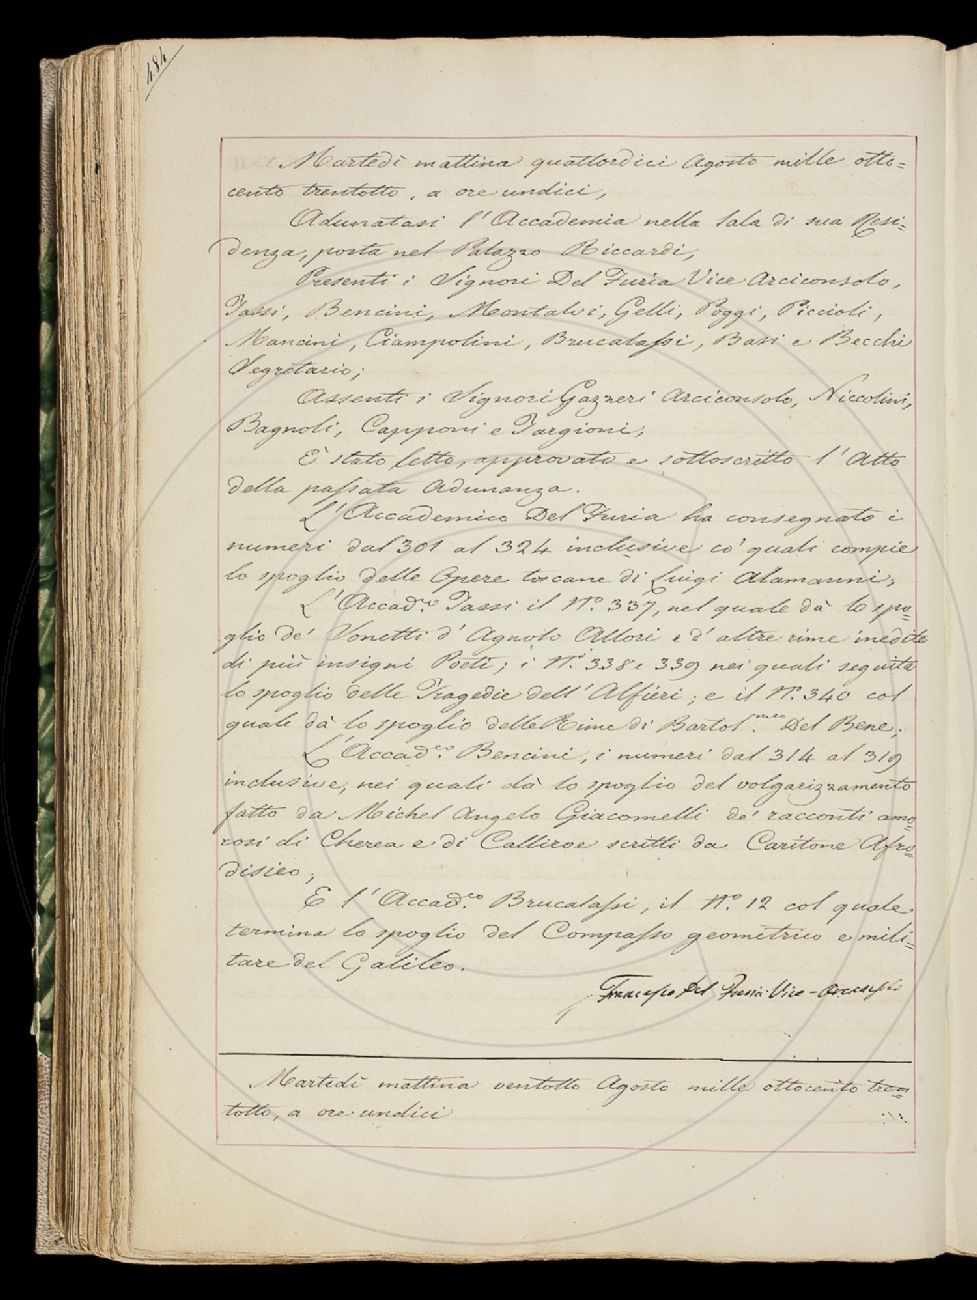 484
Martedì mattina quattordici Agosto mille otto=
cento trentotto, a ore undici,
Adunatasi l'Accademia nella Sala di sua Resi=
denza, posta nel Palazzo Riccardi,
Presenti i Signori Del Furia Vice Arciconsolo,
Tassi, Bencini, Montalvi, Gelli, Poggi, Piccioli,
Mancini, Ciampolini, Brucalassi, Basi e Becchi
Segretario;
Assenti i Signori Gazzeri Arciconsolo, Niccolini,
Bagnoli, Capponi e Targioni;
È stato letto, approvato e sottoscritto l'Atto
della passata Adunanza.
L'Accademico Del Furia ha consegnato i
numeri dal 301 al 324 inclusive co' quali compie
lo spoglio delle Opere toscane di Luigi Alamanni;
L'Accad.co Tassi il N.o 337, nel quale dà lo spo=
glio de' Sonetti d'Agnolo Allori e d'altre rime inedite
di più insigni Poeti; i N.i 338 e 339 nei quali seguita
lo spoglio delle Tragedie dell'Alfieri; e il N.o 340 col
quale dà lo spoglio delle Rime di Bartol.meo Del Bene;
L'Accad.co Bencini, i numeri dal 314 al 319
inclusive, nei quali dà lo spoglio del volgarizzamento
fatto da Michel Angelo Giacomelli de' racconti amo=
rosi di Cherea e di Calliroe scritti da Caritone Afro=
disieo;
E l'Accad.co Brucalassi, il N.o 12 col quale
termina lo spoglio del Compasso geometrico e mili=
tare del Galileo.
Francesco Del Furia Vice-Arciconsolo
Martedì mattina ventotto Agosto mille ottocento tren=
totto, a ore undici